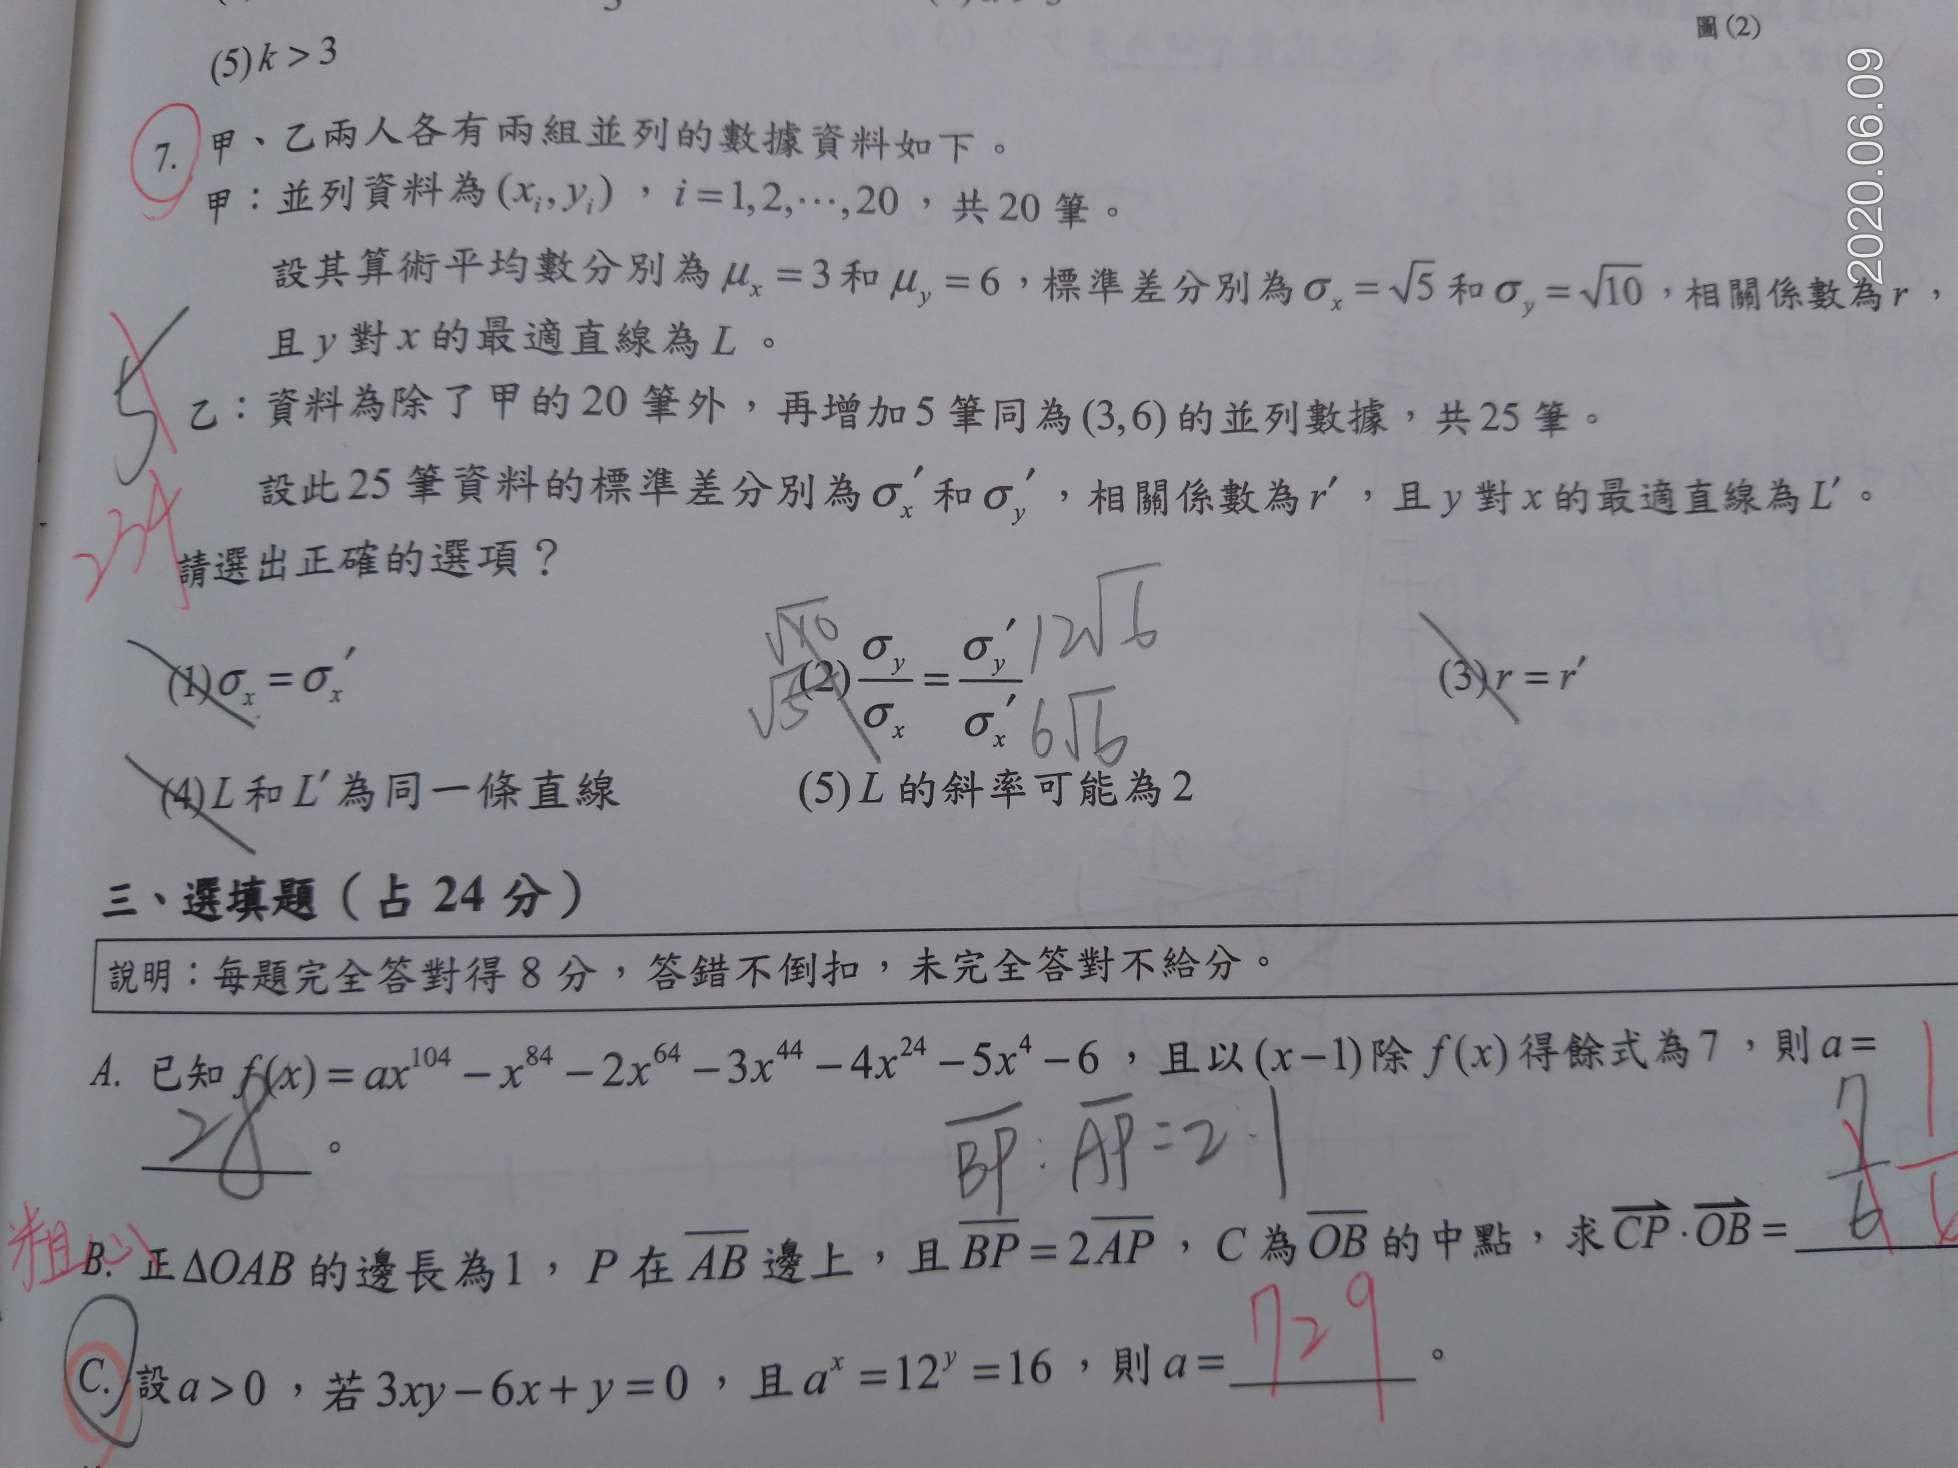 圖(2)
(5) k > 3
2020.06.09
7. 甲、乙兩人各有兩組並列的數據資料如下。
甲：並列資料為 (xᵢ, yᵢ) ，i = 1, 2, ⋯, 20 ，共 20 筆。
設其算術平均數分別為 μₓ = 3 和 μ_y = 6，標準差分別為 σₓ = √5 和 σ_y = √10，相關係數為 r，
且 y 對 x 的最適直線為 L 。
5
乙：資料為除了甲的 20 筆外，再增加 5 筆同為 (3, 6) 的並列數據，共 25 筆。
設此 25 筆資料的標準差分別為 σₓ′ 和 σ_y′，相關係數為 r′，且 y 對 x 的最適直線為 L′。
234
請選出正確的選項？
(1) σₓ = σₓ′ (2) σ_y/σₓ = σ_y′/σₓ′ (3) r = r′
√10 √5 12√6 6√6
(4) L 和 L′ 為同一條直線 (5) L 的斜率可能為 2
三、選填題（占 24 分）
說明：每題完全答對得 8 分，答錯不倒扣，未完全答對不給分。
A. 已知 f(x) = ax¹⁰⁴ − x⁸⁴ − 2x⁶⁴ − 3x⁴⁴ − 4x²⁴ − 5x⁴ − 6 ，且以 (x−1) 除 f(x) 得餘式為 7 ，則 a =
28 。
BP : AP = 2 : 1
7/6
粗心
B. 正 ΔOAB 的邊長為 1 ， P 在 AB 邊上，且 BP = 2AP ， C 為 OB 的中點，求 CP · OB =
C. 設 a > 0 ，若 3xy − 6x + y = 0 ，且 aˣ = 12ʸ = 16 ，則 a = 729 。